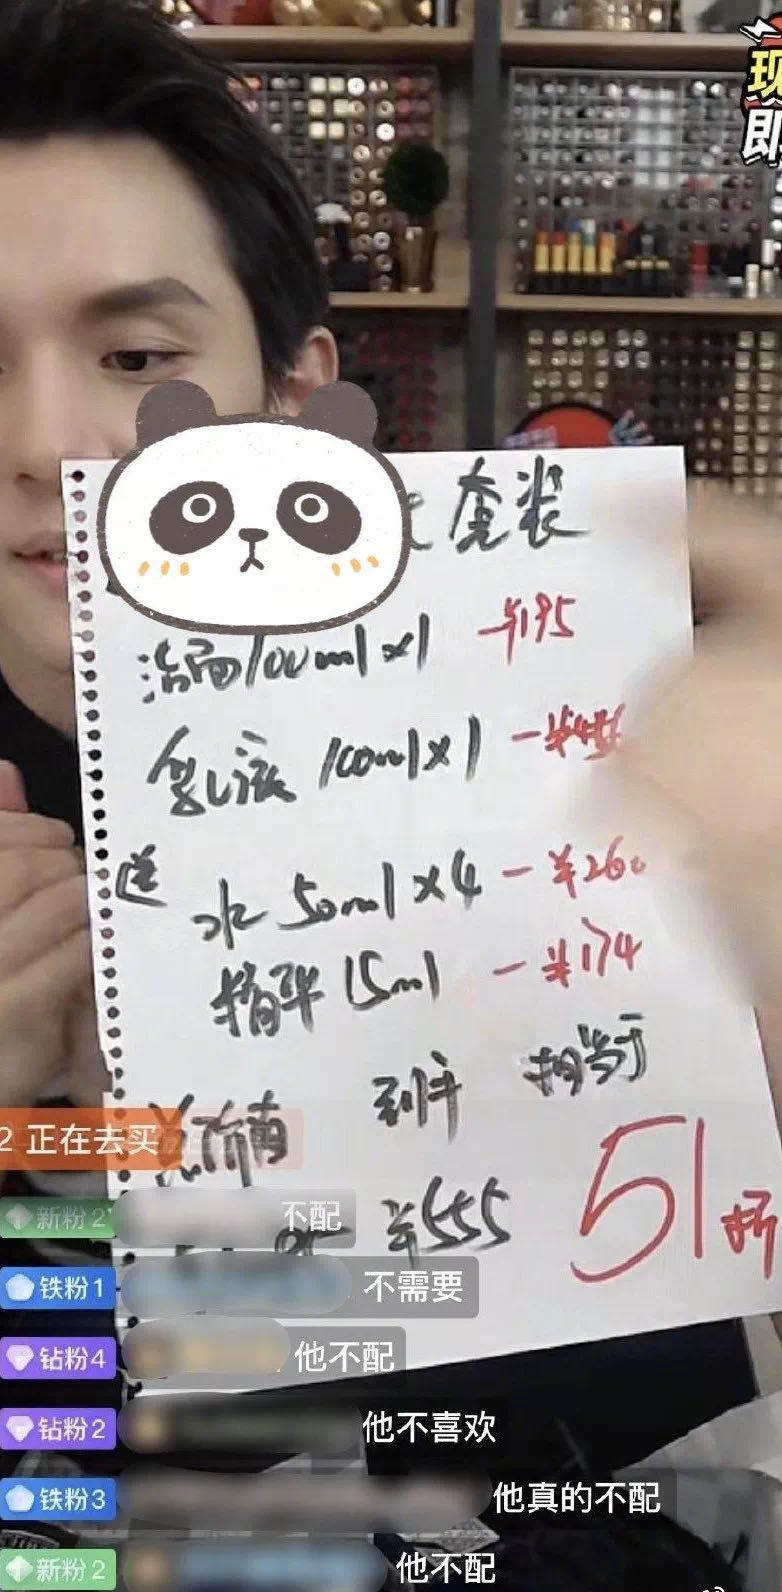 现
即
套装
洁面100ml×1 —¥195
乳液100ml×1 —¥
送
水50ml×4 —¥260
精华15ml —¥174
到手 相当于
¥555 51折
2 正在去买
新粉2 不配
铁粉1 不需要
钻粉4 他不配
钻粉2 他不喜欢
铁粉3 他真的不配
新粉2 他不配